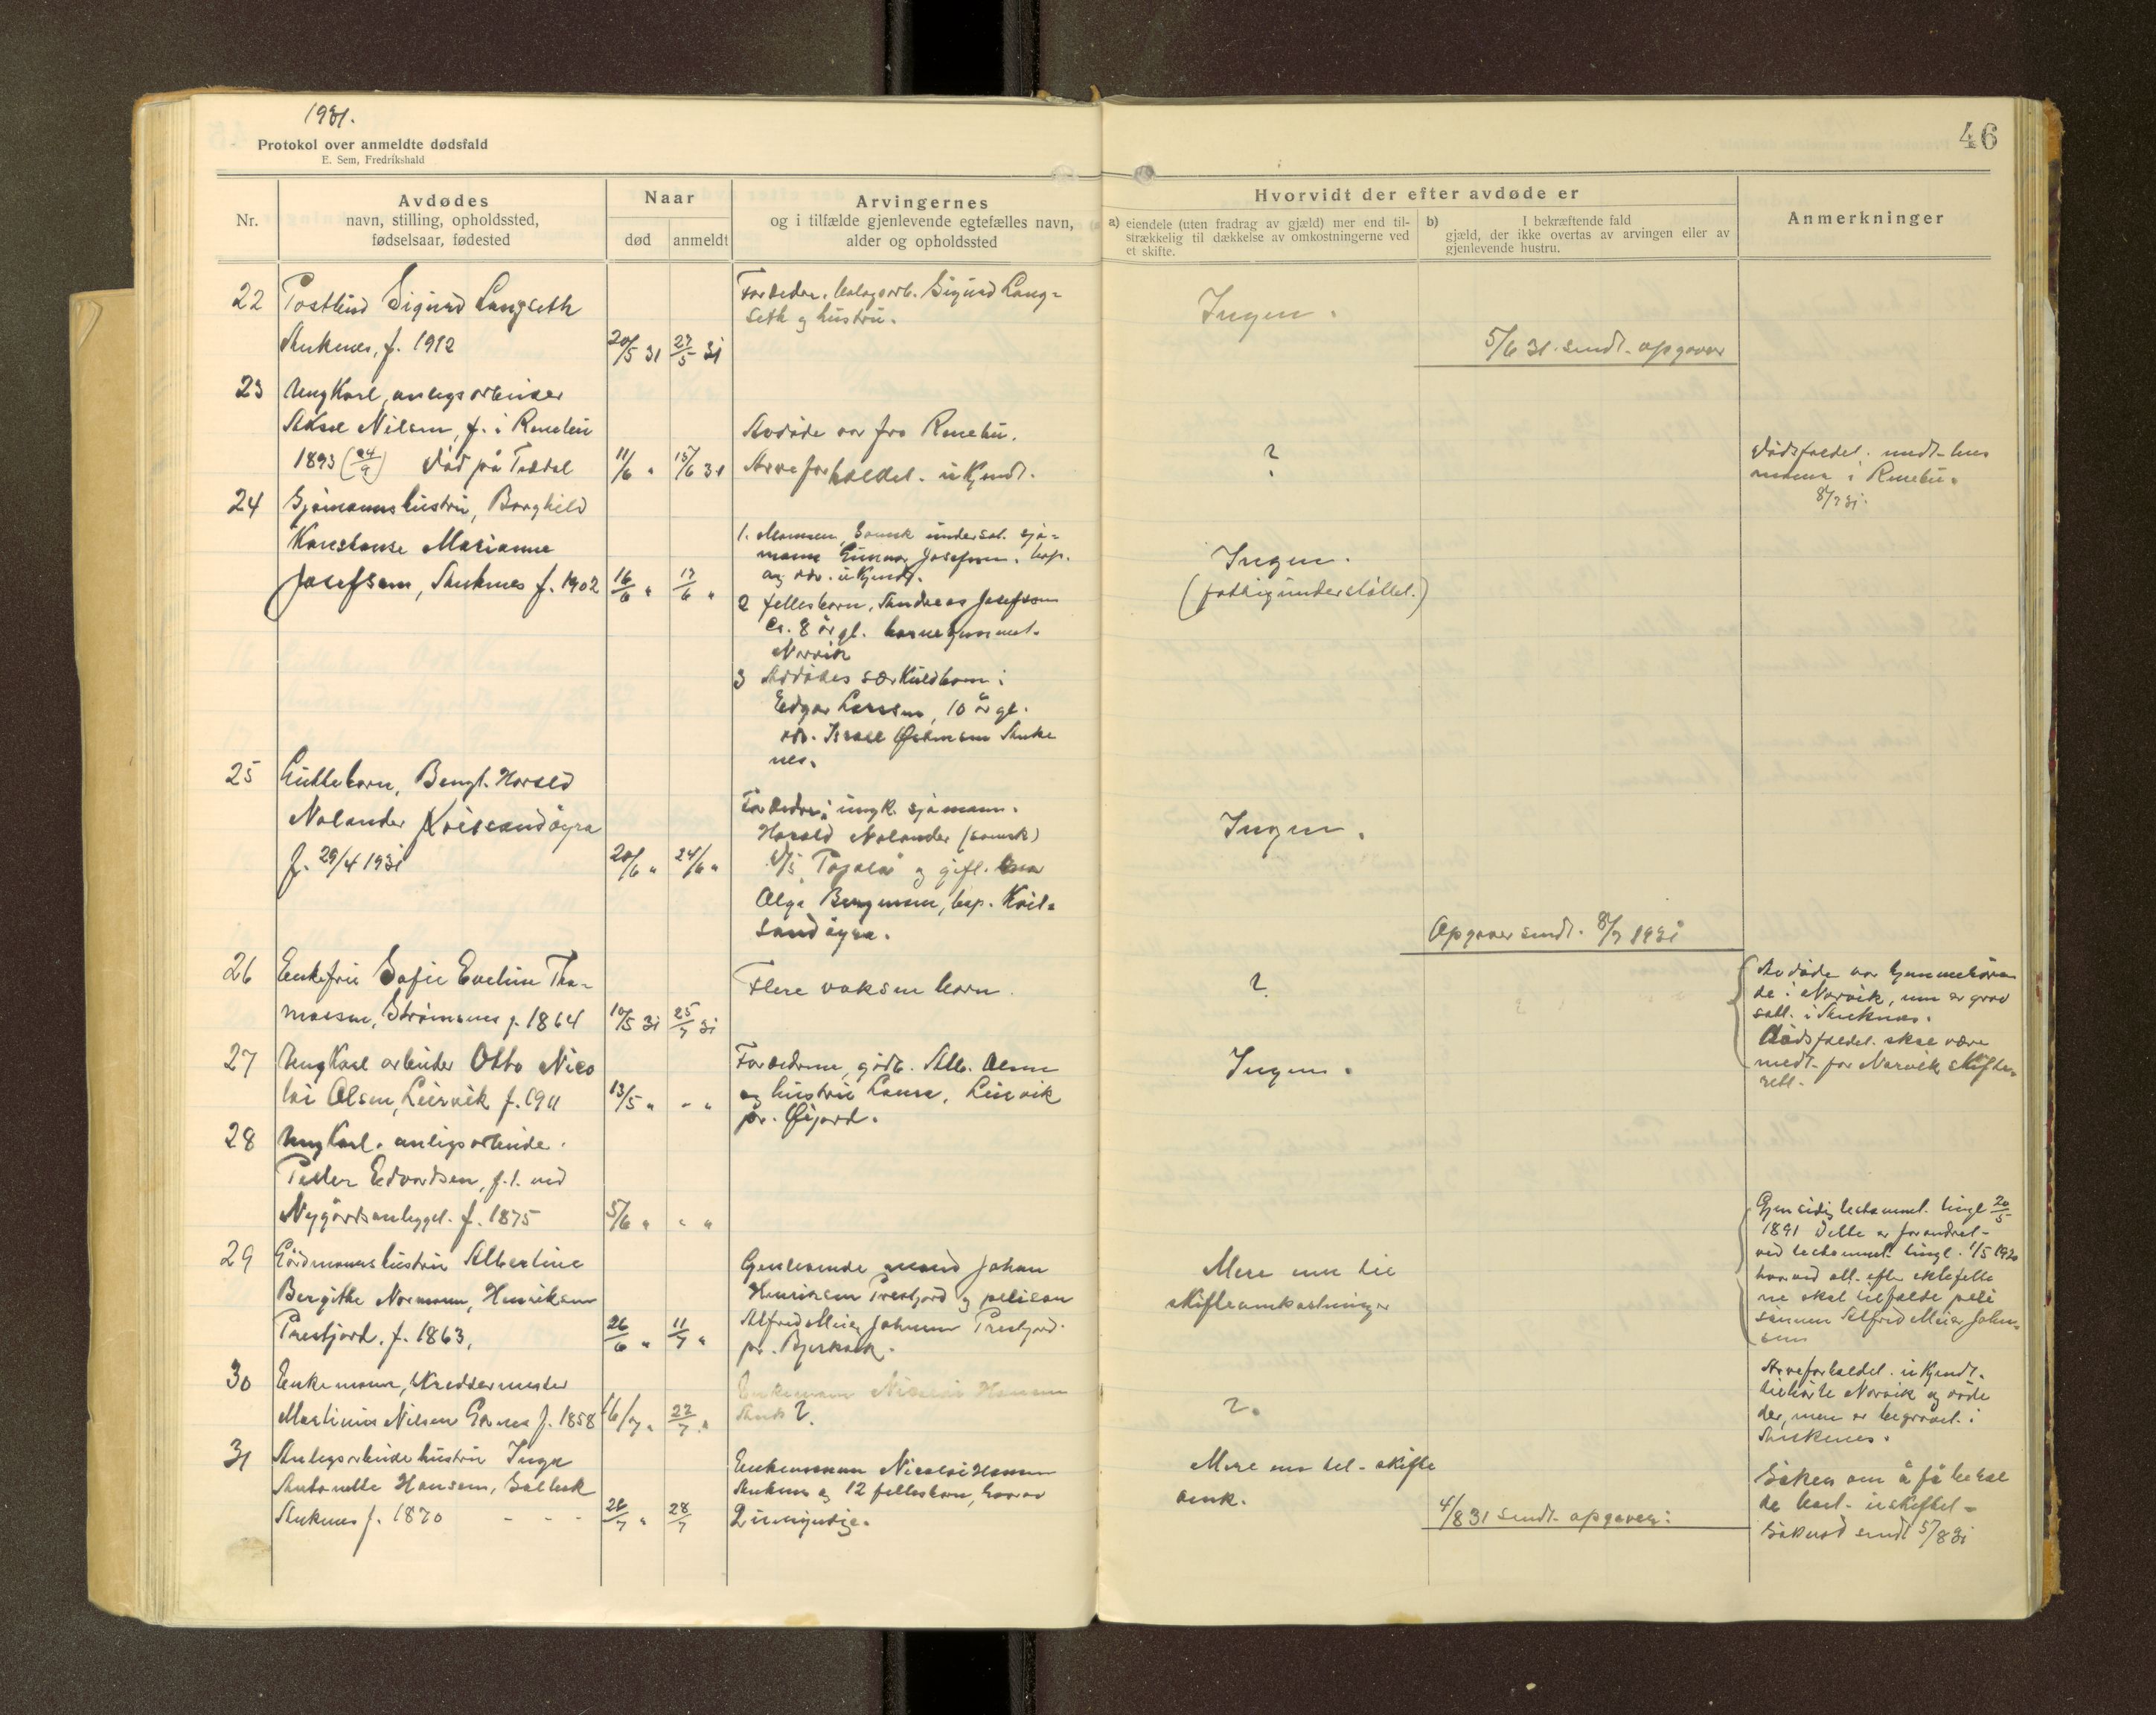 1931.
Protokol over anmeldte dødsfald
E. Sem, Fredrikshald
46
Nr.
Avdødes
navn, stilling, opholdssted,
fødselsaar, fødested
Naar
død
anmeldt
Arvingernes
og i tilfælde gjenlevende egtefælles navn,
alder og opholdssted
Hvorvidt der efter avdøde er
a) eiendele (uten fradrag av gjæld) mer end til-
strækkelig til dækkelse av omkostningerne ved
et skifte.
b) I bekræftende fald
gjæld, der ikke overtas av arvingen eller av
gjenlevende hustru.
Anmerkninger
22 Postbud Sigurd Langseth
Ankenes, f. 1912
20/5 31
27/5 31
Foreldre. Sigurd Lang-
seth og hustru.
Ingen.
5/6 31. sendt opgaver
23 Ungkarl, anlegsarbeider
Aksel Nilsen, f. i Rennebu
1893 (24/9) død på Treldal
11/6 "
15/6 31
Avdøde var fra Rennebu.
Arveforholdet ukjendt.
?
Dødsfaldet medt. lens
mannen i Rennebu.
8/7 31.
24 Sjømannshustru, Borghild
Konstanse Marianne
Josefsen, Ankenes f. 1902
16/6 "
17/6 "
1. Mannen, svensk undersåt. sjø-
mann Gunnar Josefsson. bop.
og adr. ukjendt.
2 fellesbarn, Andreas Josefson
ca. 8 år gl. barnehjemmet.
Narvik
3 Avdødes særkuldbarn:
Edgar Larsen, 10 år gl.
adr. Israel Anke
nes.
Ingen.
(fattigunderstøttet.)
25 Guttebarn, Bengt Harald
Nolander
f. 29/4 1931
20/6 "
24/6 "
Foreldre: ungk. sjømann.
Harald Nolander (svensk)
og gift.
Olga Bergman, bop.
Ingen.
Opgaver sendt. 8/7 1931
26 Enkefru Sofie Eveline Tho-
massen, Strømsnes f. 1864
10/5 31
25/7 31
Flere voksne barn.
?
Avdøde var hjemmehøren
de i Narvik, men er grav
satt i Ankenes.
Dødsfaldet skal være
medt. for Narvik skifte-
rett.
27 Ungkarl arbeider Otto Nico
lai Olsen, Leirvik f. 1911
13/5 "
- "
Foreldrene, gårdb. Alb. Olsen
og hustru Laura, Leirvik
pr. Øijord.
Ingen.
28 Ungkarl. anlegsarbeide.
Peder Edvardsen, f.t. ved
Nygårdsanlegget. f. 1875
5/6 "
" "
29 Gårdmannshustru Albertine
Bergithe Normann, Henriksen
Prestjord. f. 1863,
26/6 "
11/7 "
Gjenlevende mand Johan
Henriksen Prestjord og pleiesøn
Alfred Meier Johnsen Prestjord.
pr. Bjerkvik.
Mere enn til
skifteomkostninger
Gjensidig testament. tingl 20/5
1891 Dette er forandret
ved testament tingl. 1/5 1920
hvorved alt efter ektefelle
ne skal tilfalde pleie
sønnen Alfred Meier John-
sen
30 Enkemann, skreddermester
Martinius Nilsen f. 1858
16/7 "
22/7 "
Enkemann Nicolai Hansen
Ank ?.
?.
Arveforholdet ukjendt.
tilhørte Narvik og døde
der, men er begravet i
Ankenes.
31 Anlegsarbeiderhustru Inga
Antonette Hansen,
Ankenes f. 1870 - - -
26/7 "
28/7
Enkemann Nicolai Hansen
Ankenes og 12 fellesbarn, hvorav
2 umyndige.
Mere enn til skifte
omk.
4/8 31 sendt opgaver:
Søker om å få behol
de boet uskiftet -
Søknad sendt 5/8 31